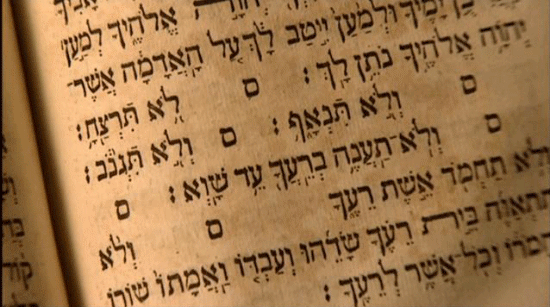 יָמֶיךָ וּלְמַעַן יִיטַב לָךְ עַל הָאֲדָמָה אֲשֶׁר־
יְהוָה אֱלֹהֶיךָ נֹתֵן לָךְ׃ ס לֹא תִּרְצָח׃
ס וְלֹא תִּנְאָף׃ ס וְלֹא תִּגְנֹב׃
ס וְלֹא־תַעֲנֶה בְרֵעֲךָ עֵד שָׁוְא׃ ס
וְלֹא תַחְמֹד אֵשֶׁת רֵעֶךָ ס וְלֹא
תִתְאַוֶּה בֵּית רֵעֶךָ שָׂדֵהוּ וְעַבְדּוֹ וַאֲמָתוֹ שׁוֹרוֹ
וַחֲמֹרוֹ וְכֹל אֲשֶׁר לְרֵעֶךָ׃